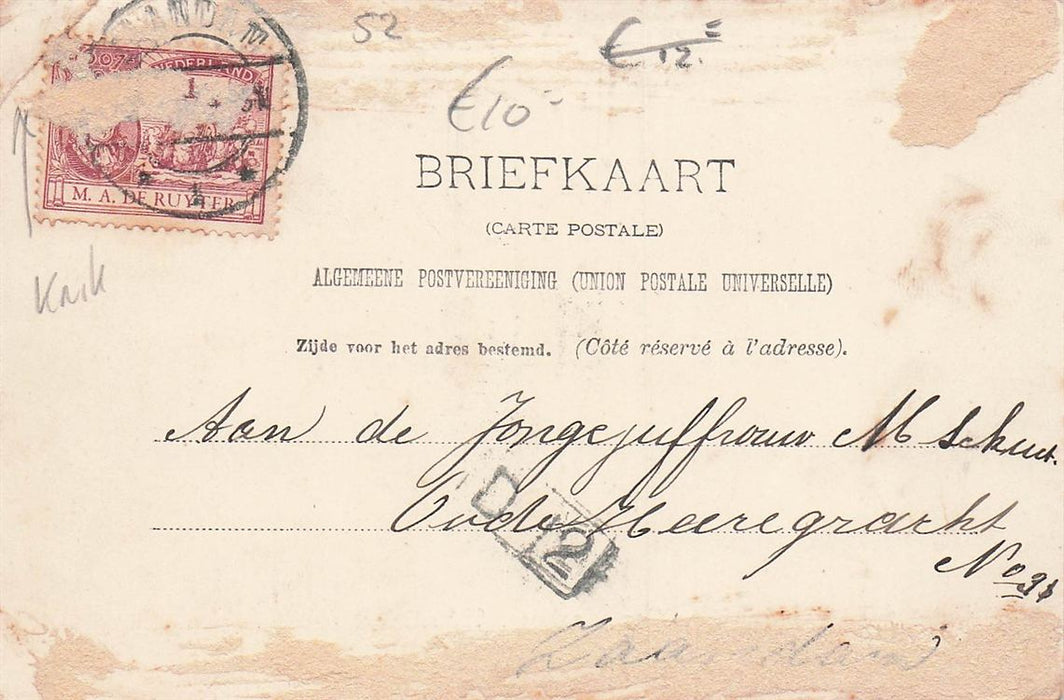 52
€ 12.=
€10-
NEDERLAND
1
M. A. DE RUYTER
BRIEFKAART
(CARTE POSTALE)
ALGEMEENE POSTVEREENIGING (UNION POSTALE UNIVERSELLE)
Zijde voor het adres bestemd. (Côté réservé à l'adresse).
Aan de Jongejuffrouw M Schut.
Oude Heeregracht
No
D 12
Zaandam